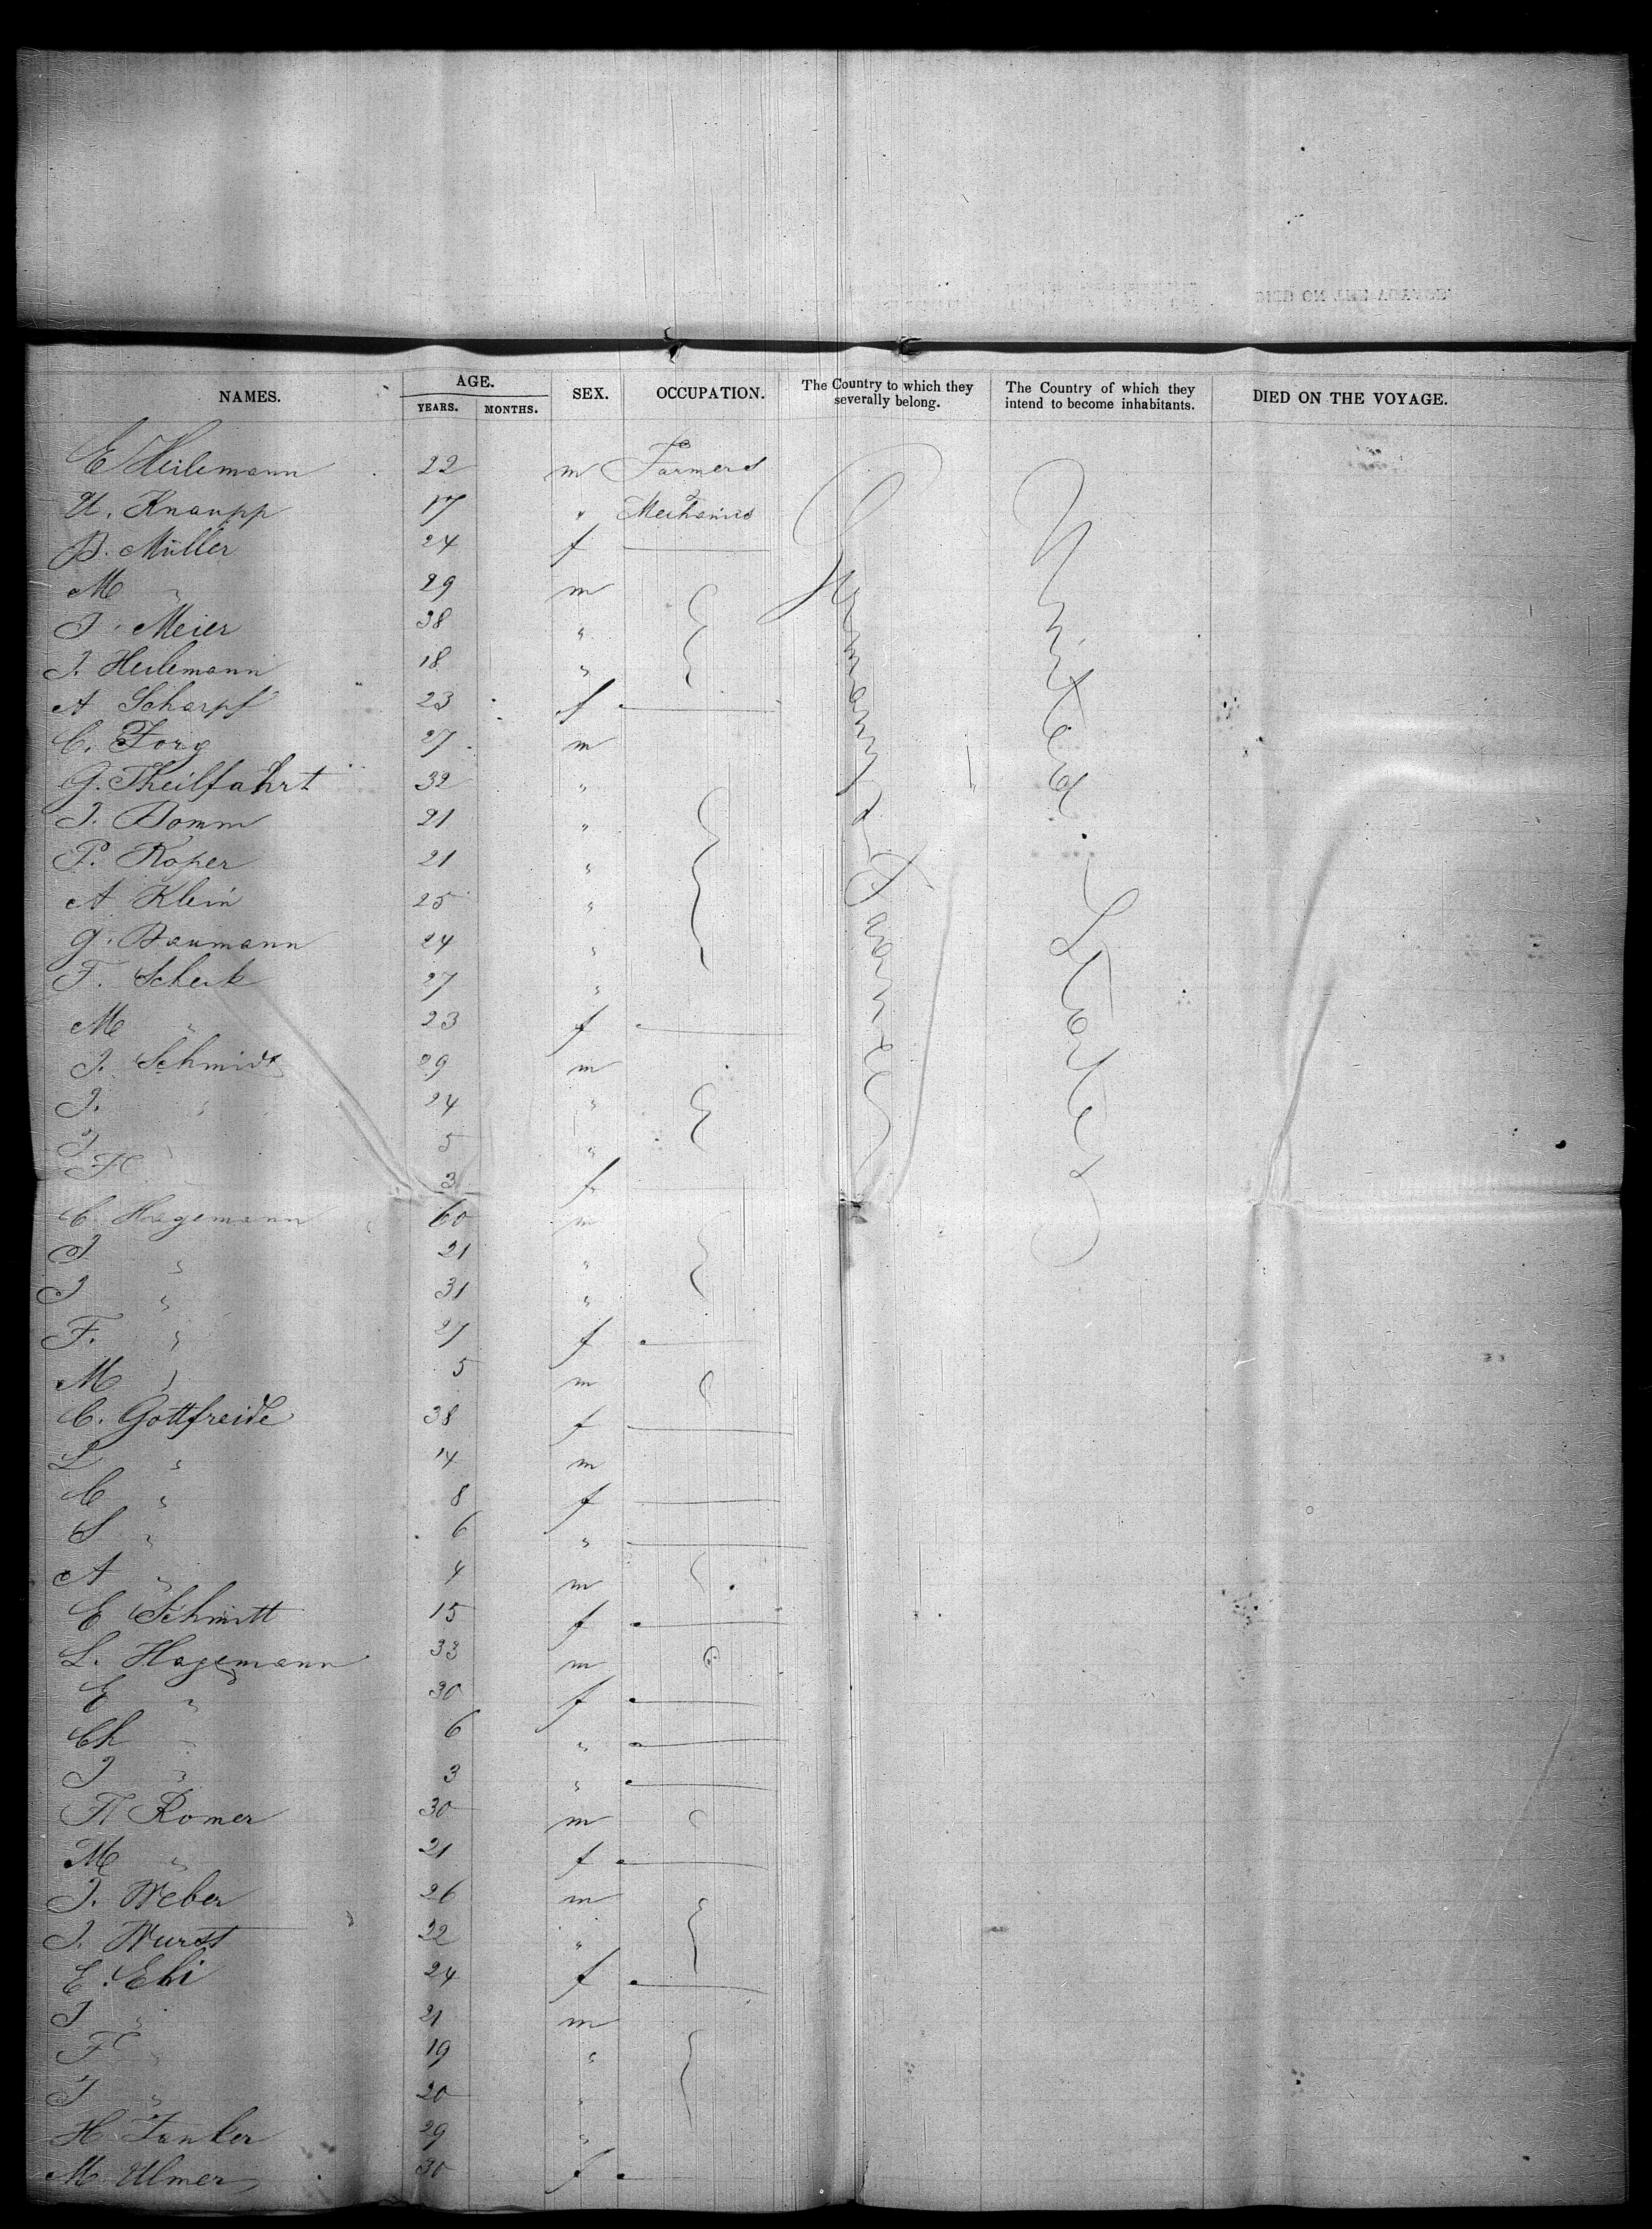 NAMES. AGE. YEARS. MONTHS. SEX. OCCUPATION. The Country to which they severally belong. The Country of which they intend to become inhabitants. DIED ON THE VOYAGE.
E Heilemann 22 m Farmers
U. Knaupp 17 " & Mechanics
B. Müller 24 f
M " 29 m
J. Meier 38 "
J. Heilemann 18 "
A Scharpf 23 f
C. Forg 27 m
G. Theilfahrt 32 "
J. Bomm 21 "
P. Roper 21 "
A Klein 25 "
G. Baumann 24 "
F. Schenk 27 "
M " 23 f
J. Schmidt 29 m
J. " 24 "
J " 5 "
H 3 f
C. Hagemann 60 m
J " 21 "
J " 31 "
F. " 27 f
M " 5 m
C. Gottfreide 38 f
L " 14 m
C " 8 f
S " 6 "
A " 4 m
E Schmitt 15 f
L. Hagemann 33 m
E " 30 f
Ch " 6 "
J " 3 "
Romer 30 m
M " 21 f
J. Weber 26 m
J. Wurst 22 "
E. Ehi 24 f
J " 21 m
F " 19 "
J " 20 "
H Janker 29 "
M Ulmer 30 f
Germany & France
United States